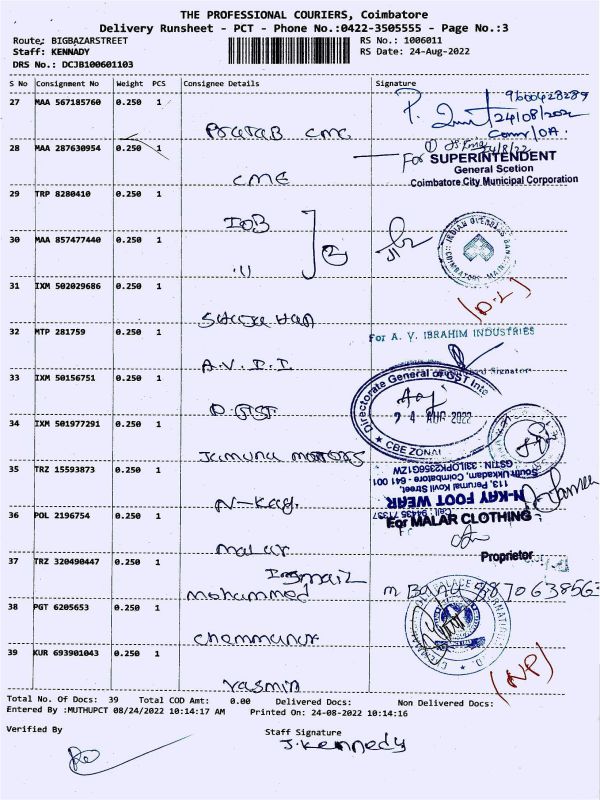 THE PROFESSIONAL COURIERS, Coimbatore
Delivery Runsheet - PCT - Phone No.:0422-3505555 - Page No.:3
Route: BIGBAZARSTREET RS No.: 1006011
Staff: KENNADY RS Date: 24-Aug-2022
DRS No.: DCJB100601103
S No Consignment No Weight PCS Consignee Details Signature
27 MAA 567185760 0.250 1 9600428289
24/08/2022
Pratab CMC
28 MAA 287630954 0.250 1
For SUPERINTENDENT
General Scetion
CME Coimbatore City Municipal Corporation
29 TRP 8280410 0.250 1
IOB
INDIAN OVERSEAS BANK
COIMBATORE MAIN
30 MAA 857477440 0.250 1
"
31 IXM 502029686 0.250 1
(D.L)
32 MTP 281759 0.250 1 For A. V. IBRAHIM INDUSTRIES
A.V.I.I
33 IXM 50156751 0.250 1 Directorate General of GST Inte
24 AUG 2022
CBE ZONAL
D.GST
34 IXM 501977291 0.250 1
Jamuna motors
35 TRZ 15593873 0.250 1 GSTIN : 33ILOPK2356G1ZW
South Ukkadam, Coimbatore - 641 001
113, Perumal Kovil Street,
N-KAY FOOT WEAR
Call : 94435 71337
N-Kay
36 POL 2196754 0.250 1 For MALAR CLOTHING
malar Proprietor
37 TRZ 320490447 0.250 1 Ismail
mohammed
38 PGT 6205653 0.250 1
Chemmanur
39 KUR 693901043 0.250 1 (NP)
Yasmin
Total No. Of Docs: 39 Total COD Amt: 0.00 Delivered Docs: Non Delivered Docs:
Entered By :MUTHUPCT 08/24/2022 10:14:17 AM Printed On: 24-08-2022 10:14:16
Verified By Staff Signature
J.Kennedy